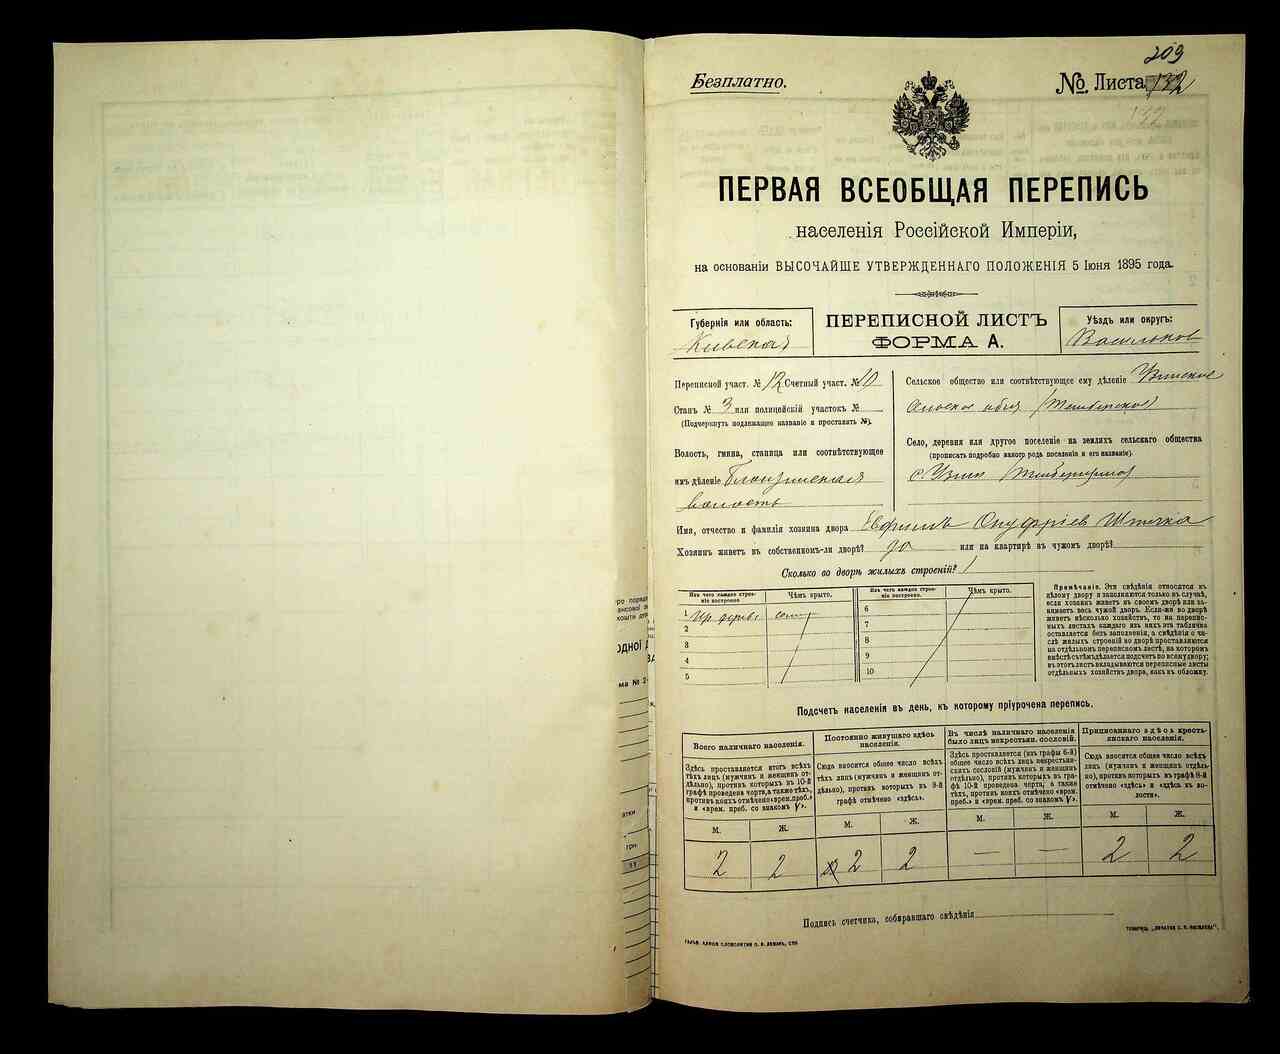 209
Безплатно.
№ Листа 132
ПЕРВАЯ ВСЕОБЩАЯ ПЕРЕПИСЬ
населенія Россійской Имперіи,
на основаніи ВЫСОЧАЙШЕ УТВЕРЖДЕННАГО ПОЛОЖЕНІЯ 5 Іюня 1895 года.
Губернія или область:
Кіевская
ПЕРЕПИСНОЙ ЛИСТЪ
ФОРМА А.
Уѣздъ или округъ:
Васильков
Переписной участ. № 12 Счетный участ. № 10
Станъ № 3 или полицейскій участокъ №
(Подчеркнуть подлежащее названіе и проставить №).
Волость, гмина, станица или соотвѣтствующее
имъ дѣленіе
волость
Сельское общество или соотвѣтствующее ему дѣленіе Узинское
Село, деревня или другое поселеніе на земляхъ сельскаго общества
(прописать подробно какого рода поселеніе и его названіе).
с. Узин
Имя, отчество и фамилія хозяина двора Онуфріев
Хозяинъ живетъ въ собственномъ-ли дворѣ? да или на квартирѣ въ чужомъ дворѣ?
Сколько во дворѣ жилыхъ строеній? 1
Изъ чего каждое строе-
ніе построено.
Чѣмъ крыто.
Изъ чего каждое строе-
ніе построено.
Чѣмъ крыто.
1
2
3
4
5
6
7
8
9
10
Примѣчаніе. Эти свѣдѣнія относятся къ
цѣлому двору и заполняются только въ случаѣ,
если хозяинъ живетъ въ своемъ дворѣ или за-
нимаетъ весь чужой дворъ. Если-же во дворѣ
живетъ нѣсколько хозяйствъ, то на перепис-
ныхъ листахъ каждаго изъ нихъ эта табличка
оставляется безъ заполненія, а свѣдѣнія о чи-
слѣ жилыхъ строеній во дворѣ проставляются
на отдѣльномъ переписномъ листѣ, на которомъ
вмѣстѣ съ тѣмъ дѣлается подсчетъ по всему двору;
въ этотъ листъ вкладываются переписные листы
отдѣльныхъ хозяйствъ двора, какъ въ обложку.
Подсчетъ населенія въ день, къ которому пріурочена перепись.
Всего наличнаго населенія.
Здѣсь проставляется итогъ всѣхъ
тѣхъ лицъ (мужчинъ и женщинъ от-
дѣльно), противъ которыхъ въ 10-й
графѣ проведена черта, а также тѣхъ,
противъ коихъ отмѣчено «врем. преб.»
и «врем. преб. со знакомъ V».
Постоянно живущаго здѣсь
населенія.
Сюда вносится общее число всѣхъ
тѣхъ лицъ (мужчинъ и женщинъ от-
дѣльно), противъ которыхъ въ 9-й
графѣ отмѣчено «здѣсь».
Въ числѣ наличнаго населенія
было лицъ некрестьян. сословій.
Здѣсь проставляется (изъ графы 6-й)
общее число всѣхъ лицъ некрестьян-
скихъ сословій (мужчинъ и женщинъ
отдѣльно), противъ которыхъ въ гра-
фѣ 10-й проведена черта, а также
тѣхъ, противъ коихъ отмѣчено «врем.
преб.» и «врем. преб. со знакомъ V».
Приписаннаго здѣсь кресть-
янскаго населенія.
Сюда вносится общее число всѣхъ
лицъ (мужчинъ и женщинъ отдѣль-
но), противъ которыхъ въ графѣ 8-й
отмѣчено «здѣсь» и «здѣсь въ во-
лости».
М. Ж. М. Ж. М. Ж. М. Ж.
2 2 2 2 — — 2 2
Подпись счетчика, собиравшаго свѣдѣнія